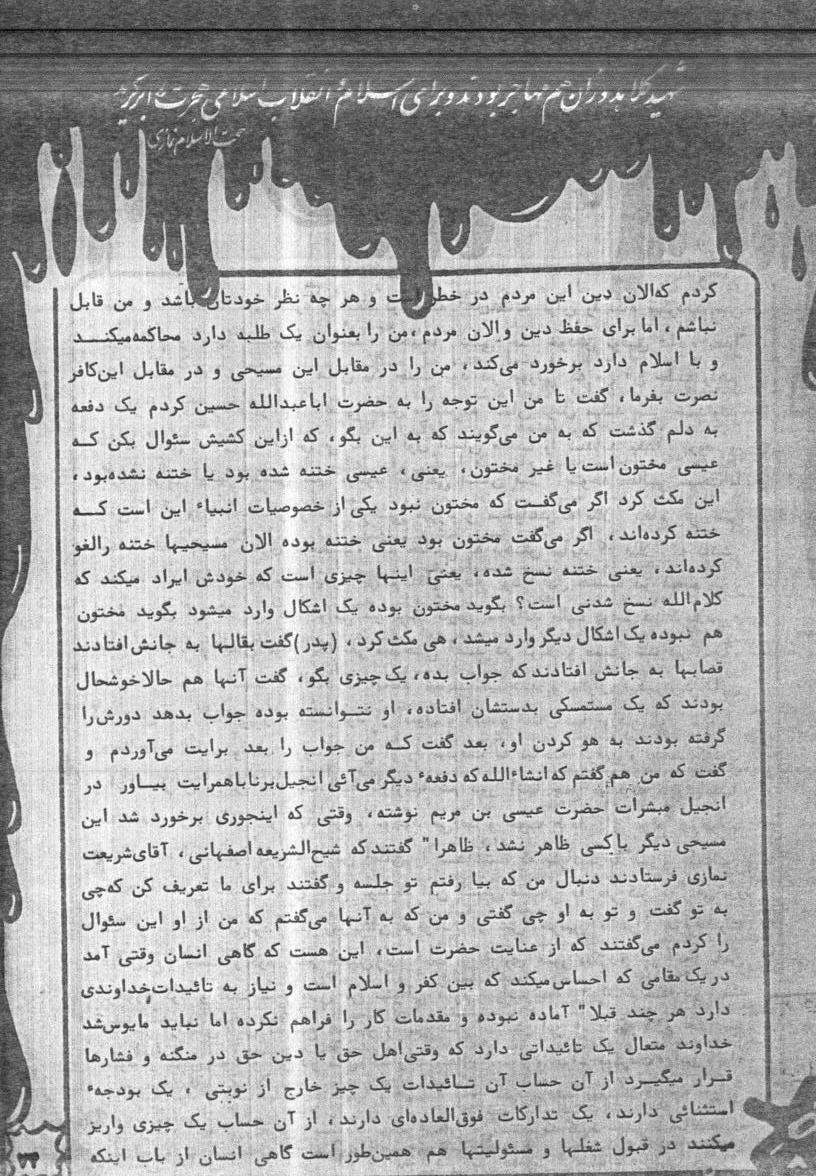 شهید کلاهدوزان هم مهاجر بودند و برای اسلام و انقلاب اسلامی هجرت ها بر کرد
حجت‌الاسلام نمازی
کردم که‌الان دین این مردم در خطر است و هر چه نظر خودتان باشد و من قابل
نباشم ، اما برای حفظ دین و الان مردم ، من را بعنوان یک طلبه دارد محاکمه‌میکنـــد
و با اسلام دارد برخورد می‌کند ، من را در مقابل این مسیحی و در مقابل این‌کافر
نصرت بفرما ، گفت تا من این توجه را به حضرت اباعبدالله حسین کردم یک دفعه
به دلم گذشت که به من می‌گویند که به این بگو ، که ازاین کشیش سئوال بکن کــه
عیسی مختون است یا غیر مختون ، یعنی ، عیسی ختنه شده بود یا ختنه نشده‌بود ،
این مکث کرد اگر می‌گفــت که مختون نبود یکی از خصوصیات انبیاء این است کــه
ختنه کرده‌اند ، اگر می‌گفت مختون بود یعنی ختنه بوده الان مسیحیها ختنه رالغو
کرده‌اند ، یعنی ختنه نسخ شده ، یعنی اینها چیزی است که خودش ایراد میکند که
کلام‌الله نسخ شدنی است؟ بگوید مختون بوده یک اشکال وارد میشود بگوید مختون
هم نبوده یک اشکال دیگر وارد میشد ، هی مکث کرد ، (پدر) گفت بقالها به جانش افتادند
قصابها به جانش افتادند که جواب بده ، یک چیزی بگو ، گفت آنها هم حالاخوشحال
بودند که یک مستمسکی بدستشان افتاده ، او نتــوانسته بوده جواب بدهد دورش‌را
گرفته بودند به هو کردن او ، بعد گفت کــه من جواب را بعد برایت می‌آوردم و
گفت که من هم گفتم که انشاءالله که دفعهٔ دیگر می‌آئی انجیل‌برناباهمرایت بیــاور در
انجیل مبشرات حضرت عیسی بن مریم نوشته ، وقتی که اینجوری برخورد شد این
مسیحی دیگر باکسی ظاهر نشد ، ظاهرا" گفتند که شیخ‌الشریعه اصفهانی ، آقای‌شریعت
نمازی فرستادند دنبال من که بیا رفتم تو جلسه و گفتند برای ما تعریف کن که‌چی
به تو گفت و تو به او چی گفتی و من که به آنها می‌گفتم که من از او این سئوال
را کردم می‌گفتند که از عنایت حضرت است ، این هست که گاهی انسان وقتی آمد
در یک مقامی که احساس‌میکند که بین کفر و اسلام است و نیاز به تائیدات‌خداوندی
دارد هر چند قبلا" آماده نبوده و مقدمات کار را فراهم نکرده اما نباید مایوس‌شد
خداوند متعال یک تائیداتی دارد که وقتی‌اهل حق یا دین حق در منگنه و فشارها
قــرار میگیــرد از آن حساب آن تــائیدات یک چیز خارج از نوبتی ، یک بودجهٔ
استثنائی دارند ، یک تدارکات فوق‌العاده‌ای دارند ، از آن حساب یک چیزی واریز
میکنند در قبول شغلها و مسئولیتها هم همین‌طور است گاهی انسان از باب اینکه